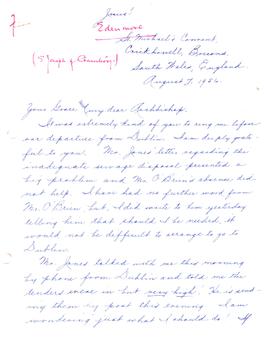 Jesus!
Edenmore
St. Michael's Convent,
(St Joseph of Cluny)
Crickhowell, Brecons.
South Wales, England.
August 7, 1956.
Your Grace & my dear Archbishop.
It was extremely kind of you to ring me before
our departure from Dublin. I am deeply grate-
ful to you! Mr. Jones' letter regarding the
inadequate sewage disposal presented a
big problem and Mr. O'Brien's absence did
not help. I have had no further word from
Mr. O'Brien but I did write to him yesterday
telling him that should I be needed, it
would not be difficult to arrange to go to
Dublin.
Mr. Jones talked with me this morning
by phone from Dublin and told me the
tenders were in but very high! He is send-
ing them by post this evening. I am
wondering just what I should do! If